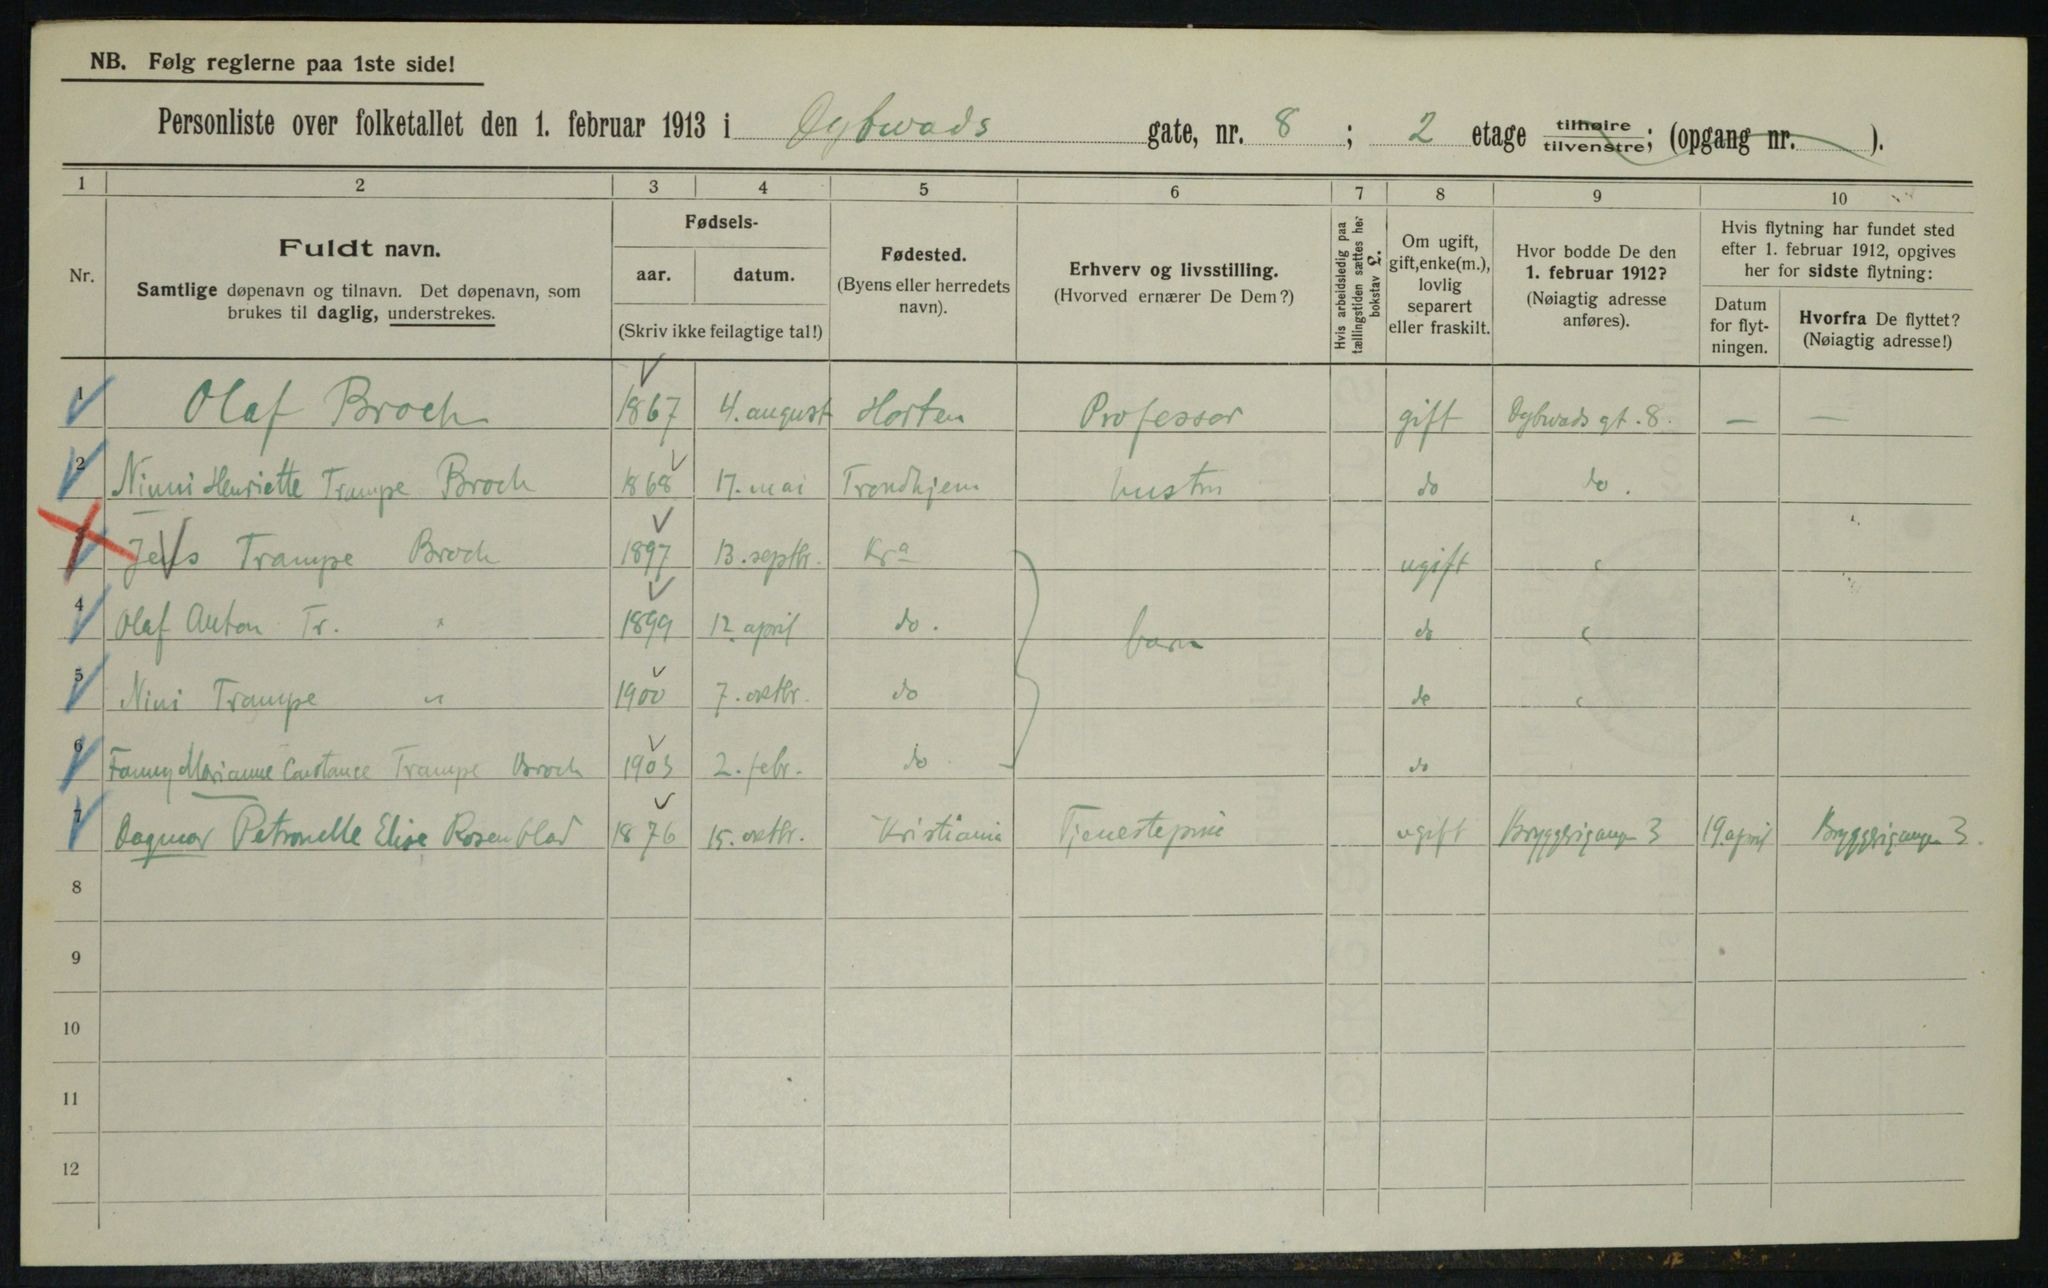 NB. Følg reglerne paa 1ste side!
Personliste over folketallet den 1. februar 1913 i Dybwads gate, nr. 8 ; 2 etage tilhøire tilvenstre; (opgang nr. ).
1 2 3 4 5 6 7 8 9 10
Nr.
Fuldt navn.
Samtlige døpenavn og tilnavn. Det døpenavn, som
brukes til daglig, understrekes.
Fødsels-
aar. datum.
(Skriv ikke feilagtige tal!)
Fødested.
(Byens eller herredets
navn).
Erhverv og livsstilling.
(Hvorved ernærer De Dem?)
Hvis arbeidsledig paa
tællingstiden sættes her
bokstav L.
Om ugift,
gift, enke(m.),
lovlig
separert
eller fraskilt.
Hvor bodde De den
1. februar 1912?
(Nøiagtig adresse
anføres).
Hvis flytning har fundet sted
efter 1. februar 1912, opgives
her for sidste flytning:
Datum
for flyt-
ningen.
Hvorfra De flyttet?
(Nøiagtig adresse!)
1 Olaf Broch 1867 4. august Horten Professor gift Dybwads gt. 8. — —
2 Ninni Henriette Trampe Broch 1868 17. mai Trondhjem hustru do do.
3 Jens Trampe Broch 1897 13. septbr. Kra ugift "
4 Olaf Anton Tr. " 1899 12. april do. barn do "
5 Nini Trampe " 1900 7. oktbr. do do "
6 Fanny Marianne Constance Trampe Broch 1903 2. febr. do do
7 Dagmar Petronelle Elise Rosenblad 1876 15. oktbr. Kristiania Tjenestepike ugift Bryggerigangen 3 19. april Bryggerigangen 3.
8
9
10
11
12